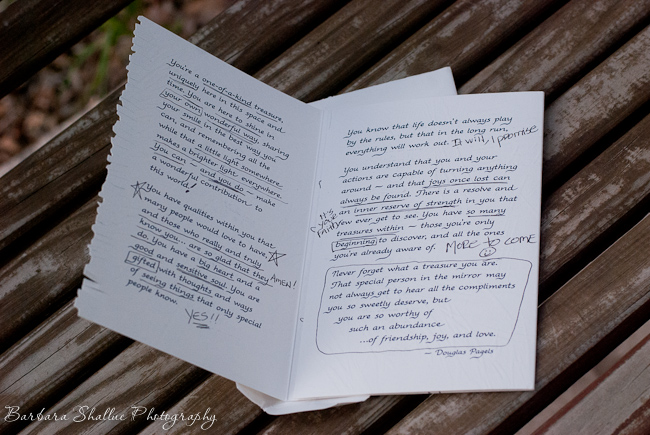 You're a one-of-a-kind treasure,
uniquely here in this space and
time. You are here to shine in
your own wonderful way, sharing
your smile in the best way you
can, and remembering all the
while that a little light somewhere
makes a brighter light everywhere.
You can — and you do — make
a wonderful contribution to
this world!
You have qualities within you that
many people would love to have,
and those who really and truly
know you... are so glad that they
do. You have a big heart and a
AMEN!
good and sensitive soul. You are
gifted with thoughts and ways
of seeing things that only special
people know.
YES!!
You know that life doesn't always play
by the rules, but that in the long run,
everything will work out. It will, I promise
You understand that you and your
actions are capable of turning anything
around — and that joys once lost can
always be found. There is a resolve and
an inner reserve of strength in you that
few ever get to see. You have so many
treasures within — those you're only
beginning to discover, and all the ones
you're already aware of. MORE to come
Never forget what a treasure you are.
That special person in the mirror may
not always get to hear all the compliments
you so sweetly deserve, but
you are so worthy of
such an abundance
...of friendship, joy, and love.
— Douglas Pagels
Barbara Shallue Photography